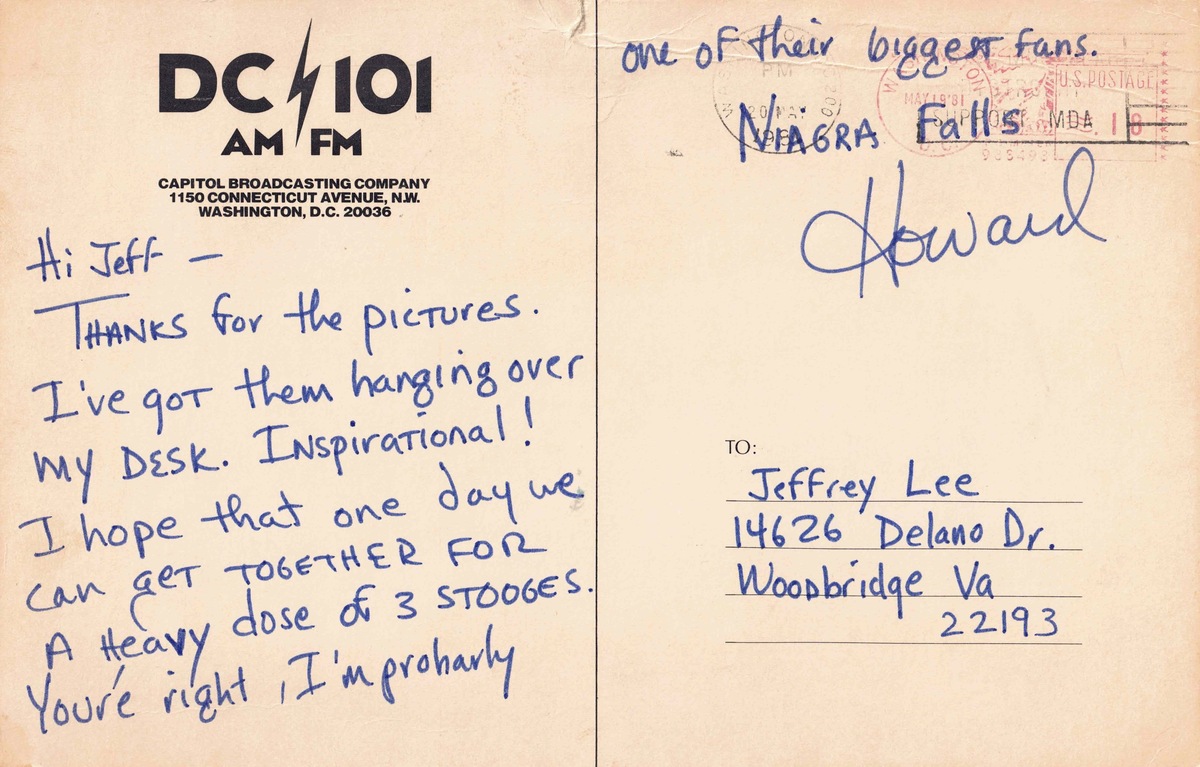 DC 101
AM FM
CAPITOL BROADCASTING COMPANY
1150 CONNECTICUT AVENUE, N.W.
WASHINGTON, D.C. 20036
Hi Jeff —
THANKS for the pictures.
I've got them hanging over
my DESK. Inspirational!
I hope that one day we
can get TOGETHER FOR
A Heavy dose of 3 STOOGES.
You're right, I'm probarly
one of their biggest fans.
NIAGRA Falls
Howard
PM
20 MAY
MAY 19'81
U.S. POSTAGE
SUPPORT MDA
.18
TO:
Jeffrey Lee
14626 Delano Dr.
Woodbridge Va
22193